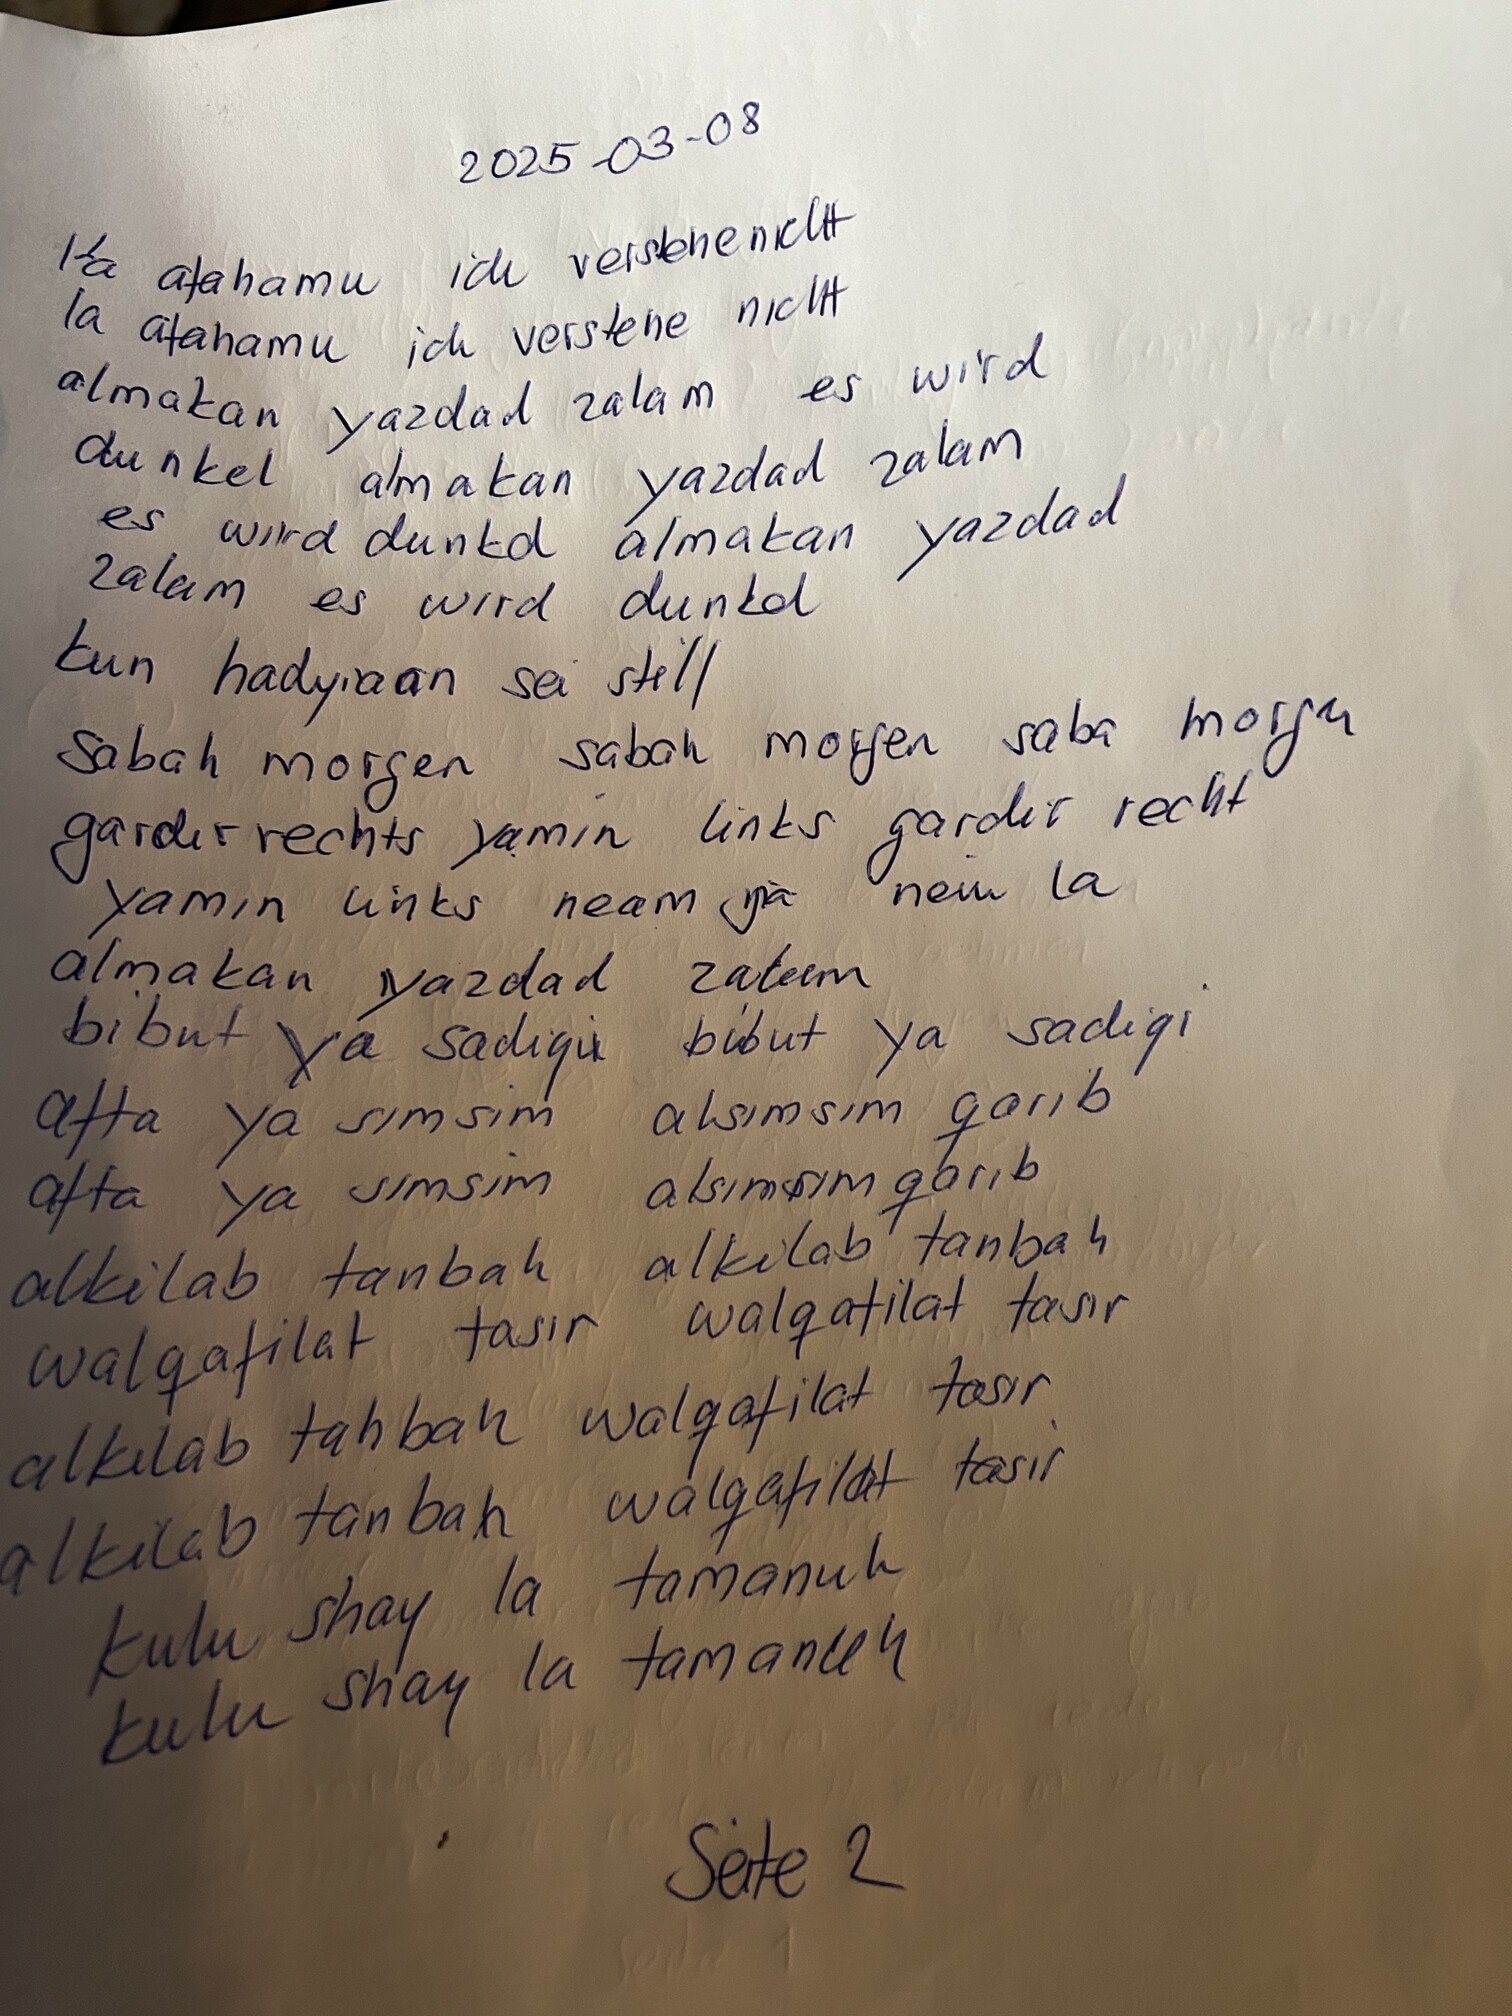 2025-03-08
la afahamu ich verstehe nicht
la afahamu ich verstehe nicht
almakan yazdad zalam es wird
dunkel almakan yazdad zalam
es wird dunkel almakan yazdad
zalam es wird dunkel
kun hadyiaan sei still
Sabah morgen sabah morgen saba morgen
garder rechts yamin links garder recht
yamin links neam ja nein la
almakan yazdad zalam
bibut ya sadiqi bibut ya sadiqi
afta ya simsim alsimsim qarib
afta ya simsim alsimsim qarib
alkilab tanbah alkilab tanbah
walqafilat tasir walqafilat tasir
alkilab tanbah walqafilat tasir
alkilab tanbah walqafilat tasir
kulu shay la tamanuh
kulu shay la
Seite 2